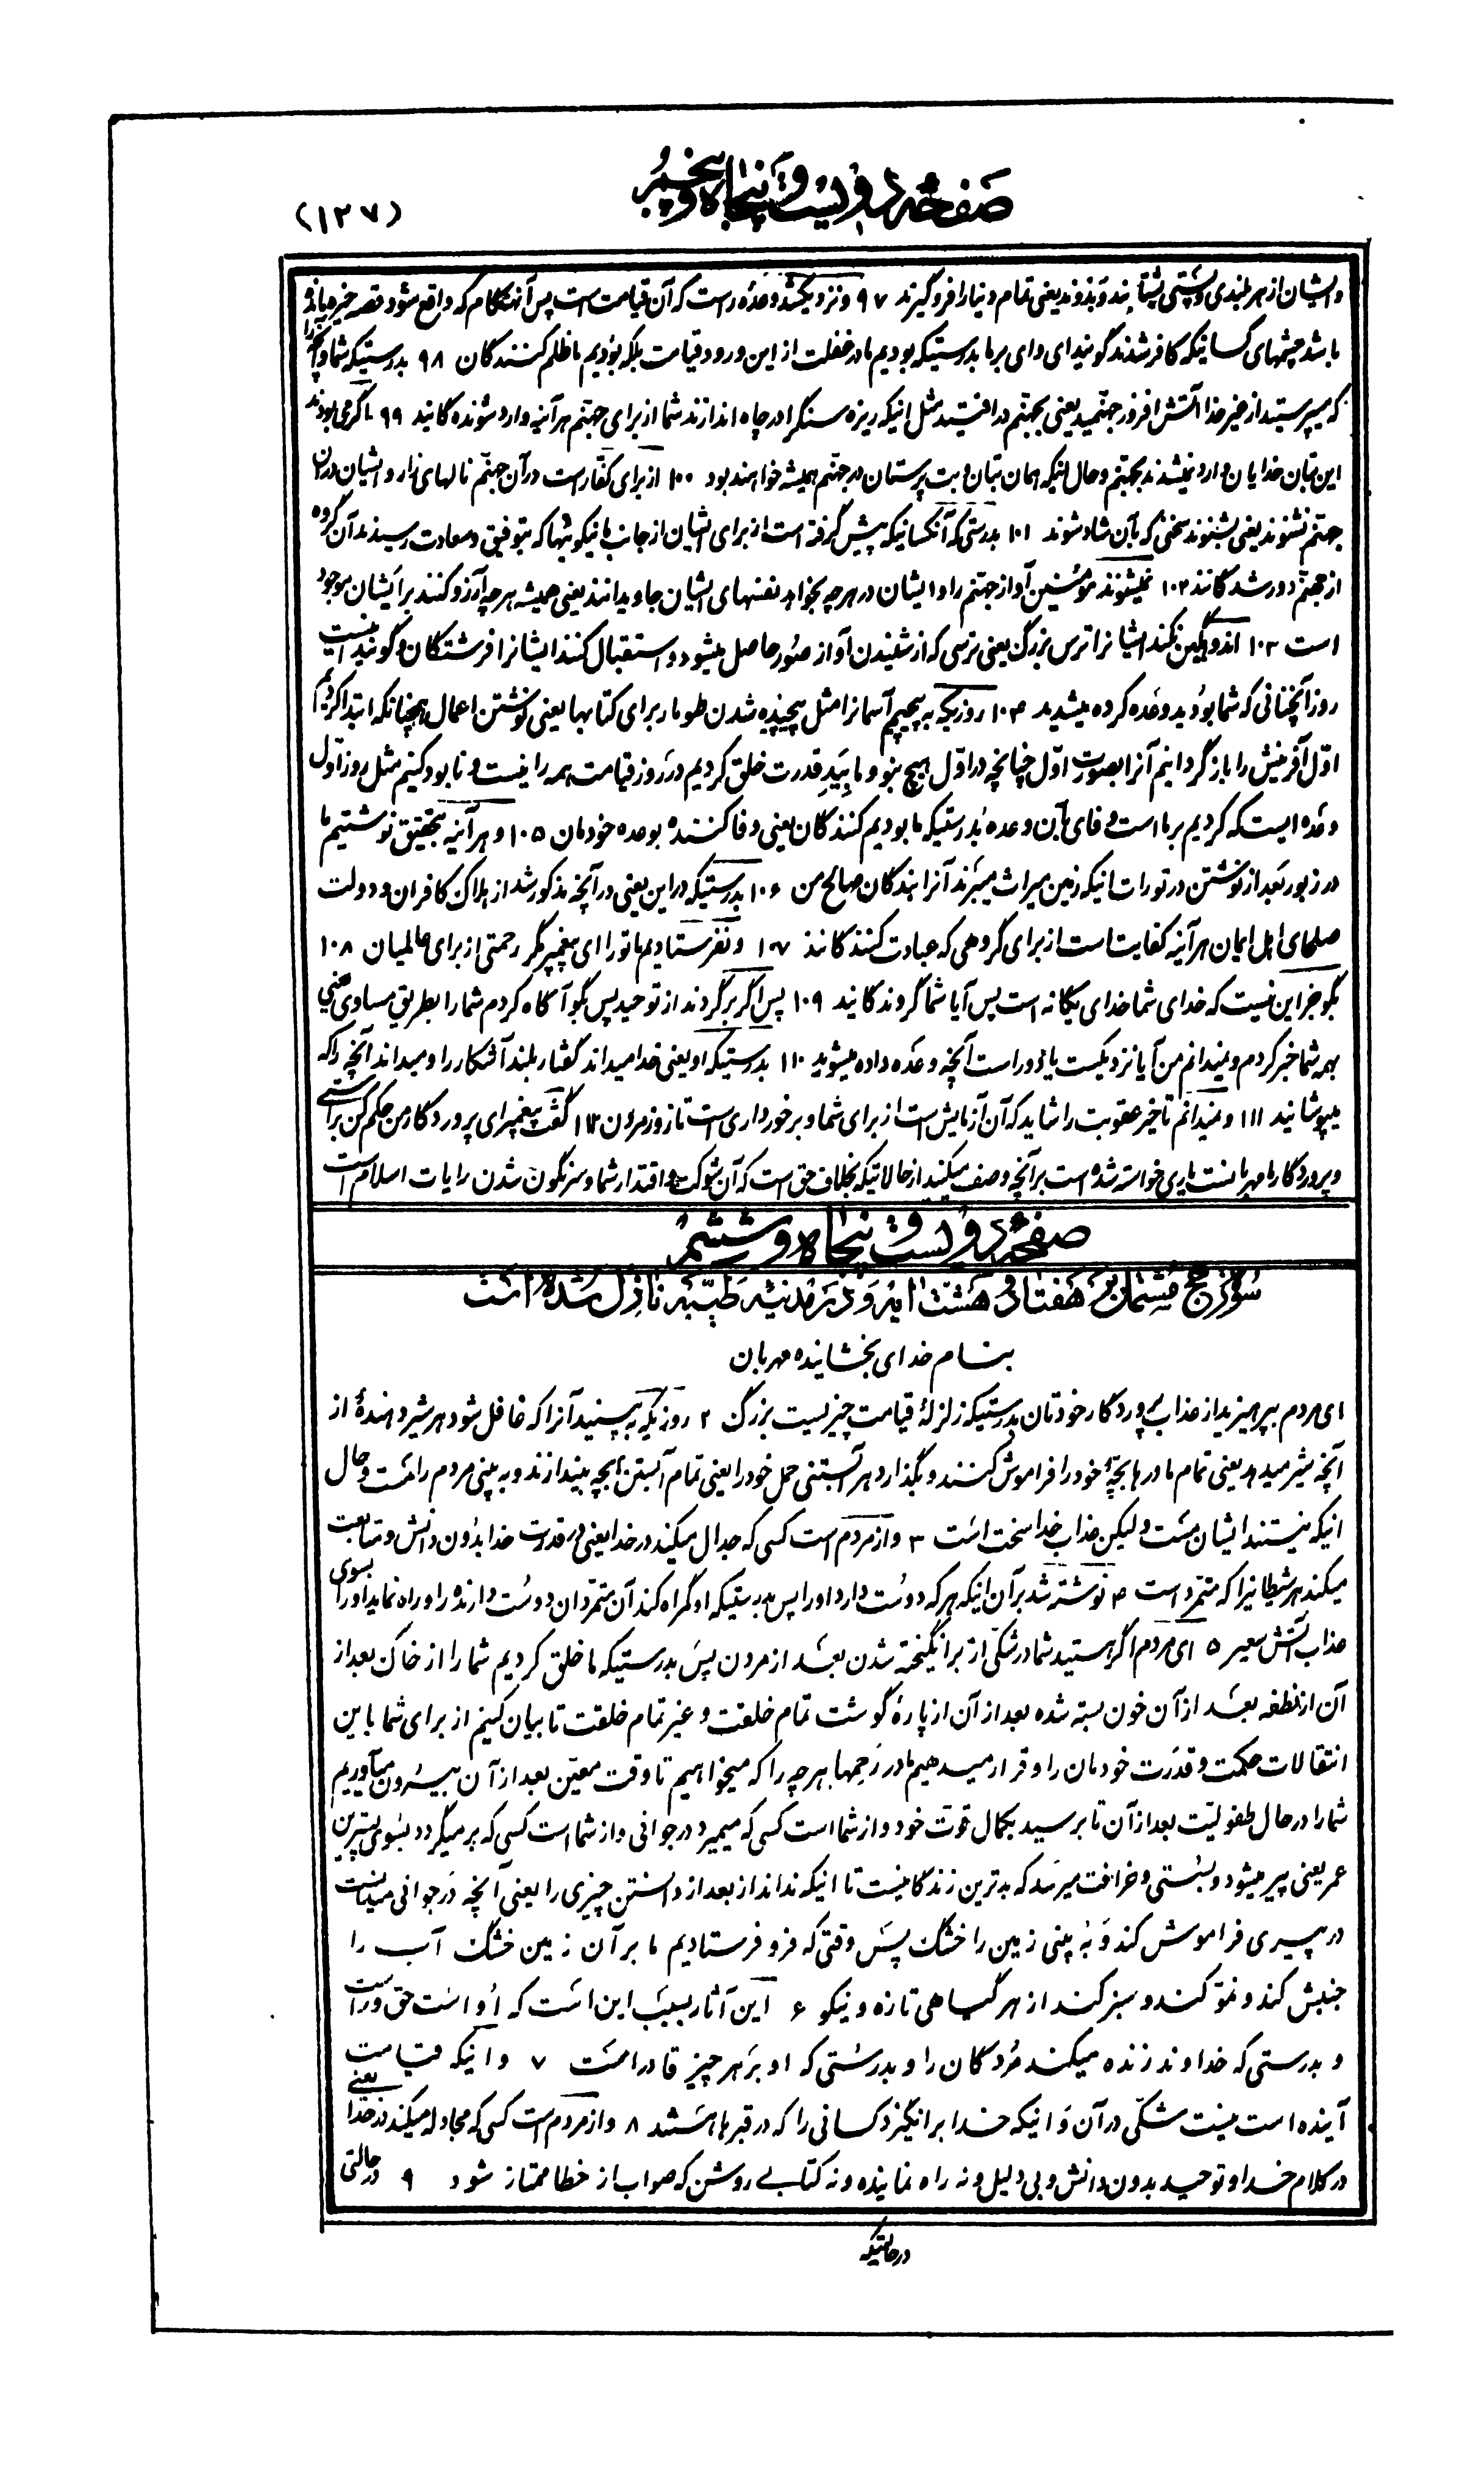 صفحه دویست و پنجاه و پنجم
(۱۲۷)
و ایشان از هر بلندی و پستی بشتابند و بدوند یعنی تمام دنیا را فرو گیرند ۹۷ و نزدیک شد وعده راست که آن قیامت است پس آنهنگام که واقع شود قصه خیره بازو
باشد چشمهای کسانیکه کافر شدند گویند ای وای بر ما بدرستیکه بودیم ما در غفلت از این ورود قیامت بلکه بودیم ما ظلم کنندگان ۹۸ بدرستیکه شما و آنچه را
که میپرستید از غیر خدا آتش افروز جهنمید یعنی بجهنم در افتید مثل اینکه ریزه سنگرا در چاه اندازند شما از برای جهنم هر آینه وارد شونده گانید ۹۹ اگر می بودند
این بتان خدایان وارد نمیشدند بجهنم و حال اینکه همان بتان و بت پرستان در جهنم همیشه خواهند بود ۱۰۰ از برای کفار است در آن جهنم نالهای زار و ایشان در آن
جهنم نشنوند یعنی نشنوند سخنی که بآن شاد شوند ۱۰۱ بدرستی که آنکسانیکه پیش گرفته است از برای ایشان از جانب ما نیکوئیها که بتوفیق و سعادت رسیدند آن گروه
از جهنم دور شدگانند ۱۰۲ نمیشنوند مؤمنین آواز جهنم را و ایشان در هر چه بخواهد نفسهای ایشان جاویدانند یعنی همیشه هر چه آرزو کنند بر ایشان موجود
است ۱۰۳ اندوهگین نکند ایشانرا ترس بزرگ یعنی ترسی که از شنیدن آواز صور حاصل میشود و استقبال کنند ایشانرا فرشتگان و گویند اینست
روز آنچنانی که شما بودید وعده کرده میشدید ۱۰۴ روزیکه به پیچیم آسمانرا مثل پیچیده شدن طومار برای کتابها یعنی نوشتن اعمال همچنانکه ابتدا کردیم
اول آفرینش را باز گردانیم آنرا بصورت اول چنانچه در اول هیچ نبود ما بید قدرت خلق کردیم در روز قیامت همه را نیست و نابود کنیم مثل روز اول
وعده ایست که کردیم بر ما است وفای بآن وعده بدرستیکه ما بودیم کنندگان یعنی وفا کننده بوعده خودمان ۱۰۵ و هر آینه بتحقیق نوشتیم ما
در زبور بعد از نوشتن در تورات اینکه زمین میراث میبرند آنرا بندگان صالح من ۱۰۶ بدرستیکه در این یعنی در آنچه مذکور شد از هلاک کافران و دولت
صلحای اهل ایمان هر آینه کفایت است از برای گروهی که عبادت کنند گانند ۱۰۷ و نفرستادیم ما تو را ای پیغمبر مگر رحمتی از برای عالمیان ۱۰۸
بگو جز این نیست که خدای شما خدای یگانه است پس آیا شما گروندگانید ۱۰۹ پس اگر برگردند از توحید پس بگو آگاه کردم شما را بطریق مساوی یعنی
بهمه شما خبر کردم و نمیدانم من آیا نزدیکست یا دور است آنچه وعده داده میشوید ۱۱۰ بدرستیکه او یعنی خدا میداند گفتار بلند آشکار را و میداند آنچه را که
میپوشانید ۱۱۱ و نمیدانم تاخیر عقوبت را شاید که آن آزمایش است از برای شما و برخورداری است تا روز مردن ۱۱۲ گفت پیغمبر ای پروردگار من حکم کن براستی
و پروردگار ما مهربانست یاری خواسته شده است بر آنچه وصف میکنید از حالاتیکه بخلاف حق است که آن شوکت و اقتدار شما و سرنگون شدن رایات اسلام است
صفحه دویست و پنجاه و ششم
سوره حج مشتمل بر هفتاد و هشت ایه و در مدینه طیبه نازل شده است
بنام خدای بخشاینده مهربان
ای مردم بپرهیزید از عذاب پروردگار خودتان بدرستیکه زلزله قیامت چیزیست بزرگ ۲ روزیکه ببینید آنرا که غافل شود هر شیر دهندهٔ از
آنچه شیر میدهد یعنی تمام مادرها بچهٔ خود را فراموش کنند و بگذارد هر آبستنی حمل خود را یعنی تمام آبستن بچه بیندازند و به بینی مردم را مست و حال
اینکه نیستند ایشان مست و لیکن عذاب خدا سخت است ۳ و از مردم است کسی که جدال میکند در خدا یعنی در قدرت خدا بدون دانش و متابعت
میکند هر شیطانیرا که متمرد است ۴ نوشته شد بر آن اینکه هر که دوست دارد او را پس بدرستیکه او گمراه کند آن متمردان دوست دارنده را و راه نماید او را بسوی
عذاب آتش سعیر ۵ ای مردم اگر هستید شما در شکی از بر انگیخته شدن بعد از مردن پس بدرستیکه ما خلق کردیم شما را از خاک بعد از
آن از نطفه بعد از آن خون بسته شده بعد از آن از پارهٔ گوشت تمام خلقت و غیر تمام خلقت تا بیان کنیم از برای شما باین
انتقالات حکمت و قدرت خودمان را و قرار میدهیم ما در رحمها هر چه را که میخواهیم تا وقت معین بعد از آن بیرون میآوریم
شما را در حال طفولیت بعد از آن تا برسید بکمال قوت خود و از شما است کسی که میمیرد در جوانی و از شما است کسی که بر میگردد بسوی پسترین
عمر یعنی پیر میشود و بسستی و خرافت میرسد که بدترین زندگانیست تا اینکه نداند از بعد از دانستن چیزی را یعنی آنچه در جوانی میدانست
در پیری فراموش کند و به بینی زمین را خشک پس وقتی که فرو فرستادیم ما بر آن زمین خشک آب را
جنبش کند و نمو کند و سبز کند از هر گیاهی تازه و نیکو ۶ این آثار بسبب این است که او است حق و راست
و بدرستی که خداوند زنده میکند مردگان را و بدرستی که او بر هر چیز قادر است ۷ و اینکه قیامت
آینده است نیست شکی در آن و اینکه خدا برانگیزد کسانی را که در قبرها هستند ۸ و از مردم است کسی که مجادله میکند در خدا یعنی
در کلام خدا و توحید بدون دانش و بی دلیل و نه راه نماینده و نه کتابی روشن که صواب از خطا ممتاز شود ۹ در حالتی
در حالتیکه